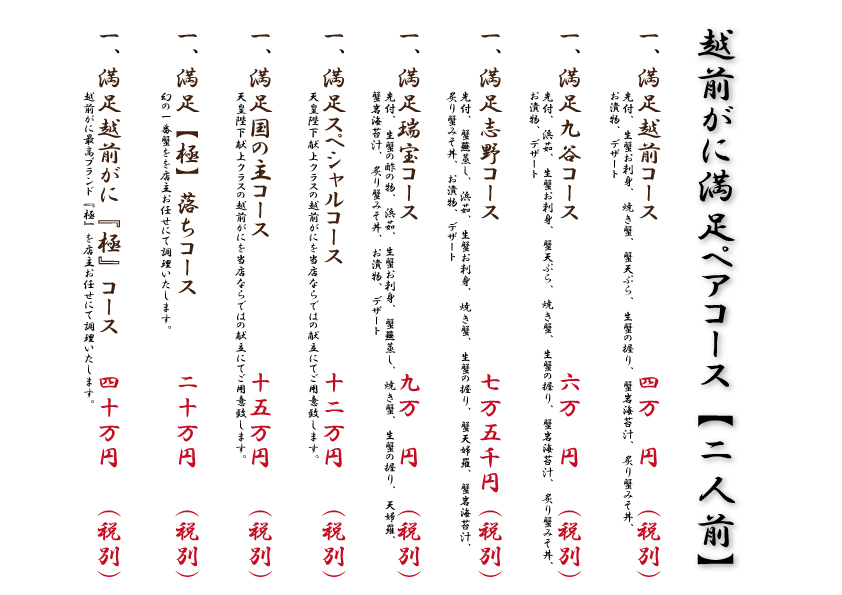 越前がに満足ペアコース【二人前】
一、満足越前コース 四万 円 (税別)
先付、生蟹お刺身、焼き蟹、蟹天ぷら、生蟹の握り、蟹岩海苔汁、炙り蟹みそ丼、
お漬物、デザート
一、満足九谷コース 六万 円 (税別)
先付、浜茹、生蟹お刺身、蟹天ぷら、焼き蟹、生蟹の握り、蟹岩海苔汁、炙り蟹みそ丼、
お漬物、デザート
一、満足志野コース 七万五千円 (税別)
先付、蟹蕪蒸し、浜茹、生蟹お刺身、焼き蟹、生蟹の握り、蟹天婦羅、蟹岩海苔汁、
炙り蟹みそ丼、お漬物、デザート
一、満足瑞宝コース 九万 円 (税別)
先付、生蟹の酢の物、浜茹、生蟹お刺身、蟹蕪蒸し、焼き蟹、生蟹の握り、天婦羅、
蟹岩海苔汁、炙り蟹みそ丼、お漬物、デザート
一、満足スペシャルコース 十二万円 (税別)
天皇陛下献上クラスの越前がにを当店ならではの献立にてご用意致します。
一、満足国の主コース 十五万円 (税別)
天皇陛下献上クラスの越前がにを当店ならではの献立にてご用意致します。
一、満足【極】落ちコース 二十万円 (税別)
幻の一番蟹をを店主お任せにて調理いたします。
一、満足越前がに『極』コース 四十万円 (税別)
越前がに最高ブランド『極』を店主お任せにて調理いたします。